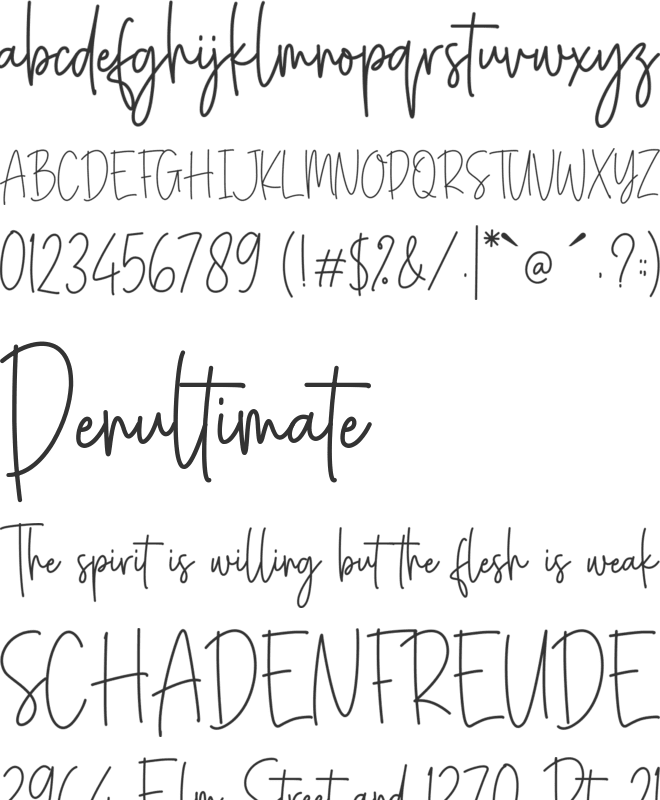 abcdefghijklmnopqrstuvwxyz
ABCDEFGHIJKLMNOPQRSTUVWXYZ
0123456789 (!#$%&/.|*`@´.?:)
Penultimate
The spirit is willing but the flesh is weak
SCHADENFREUDE
Elm Street and 1270 Rt. 21